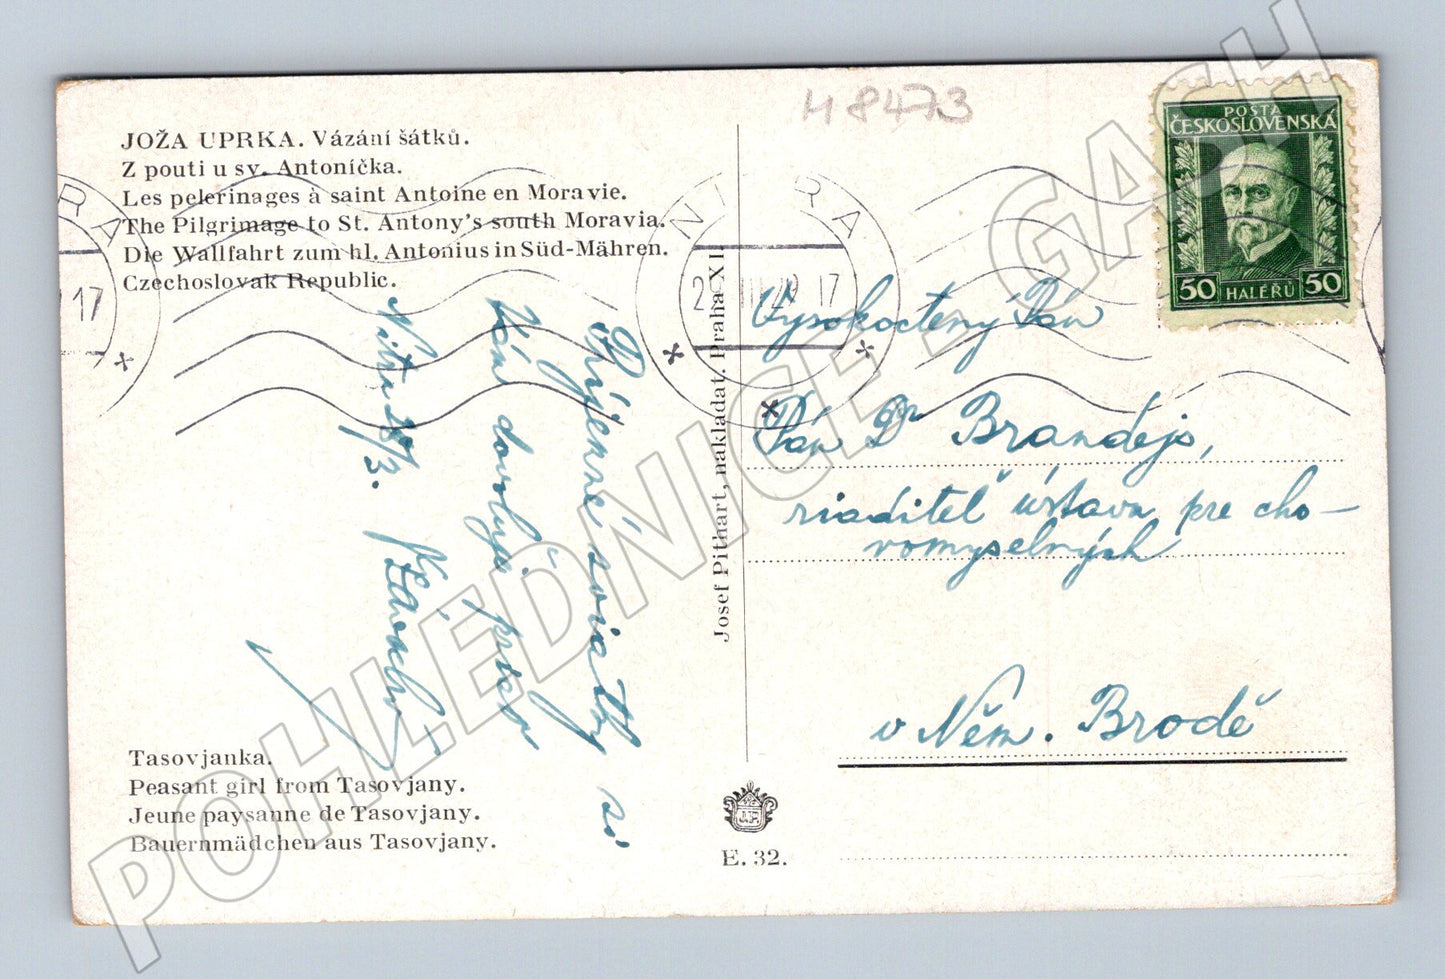 H 8473
JOŽA UPRKA. Vázání šátků.
Z pouti u sv. Antoníčka.
Les pelerinages à saint Antoine en Moravie.
The Pilgrimage to St. Antony's south Moravia.
Die Wallfahrt zum hl. Antonius in Süd-Mähren.
Czechoslovak Republic.
Príjemné sviatky si
Vám dovolujú
Nitra 28/3.
Tasovjanka.
Peasant girl from Tasovjany.
Jeune paysanne de Tasovjany.
Bauernmädchen aus Tasovjany.
Josef Pithart, nakladat. Praha XI.
E. 32.
POŠTA
ČESKOSLOVENSKÁ
50 HALÉŘŮ 50
NITRA
17
Vysokoctený Pán
Pán Dr Brandejs,
riaditeľ ústavu pre cho-
romyselných
v Něm. Brodě
POHLEDNICE - GASH